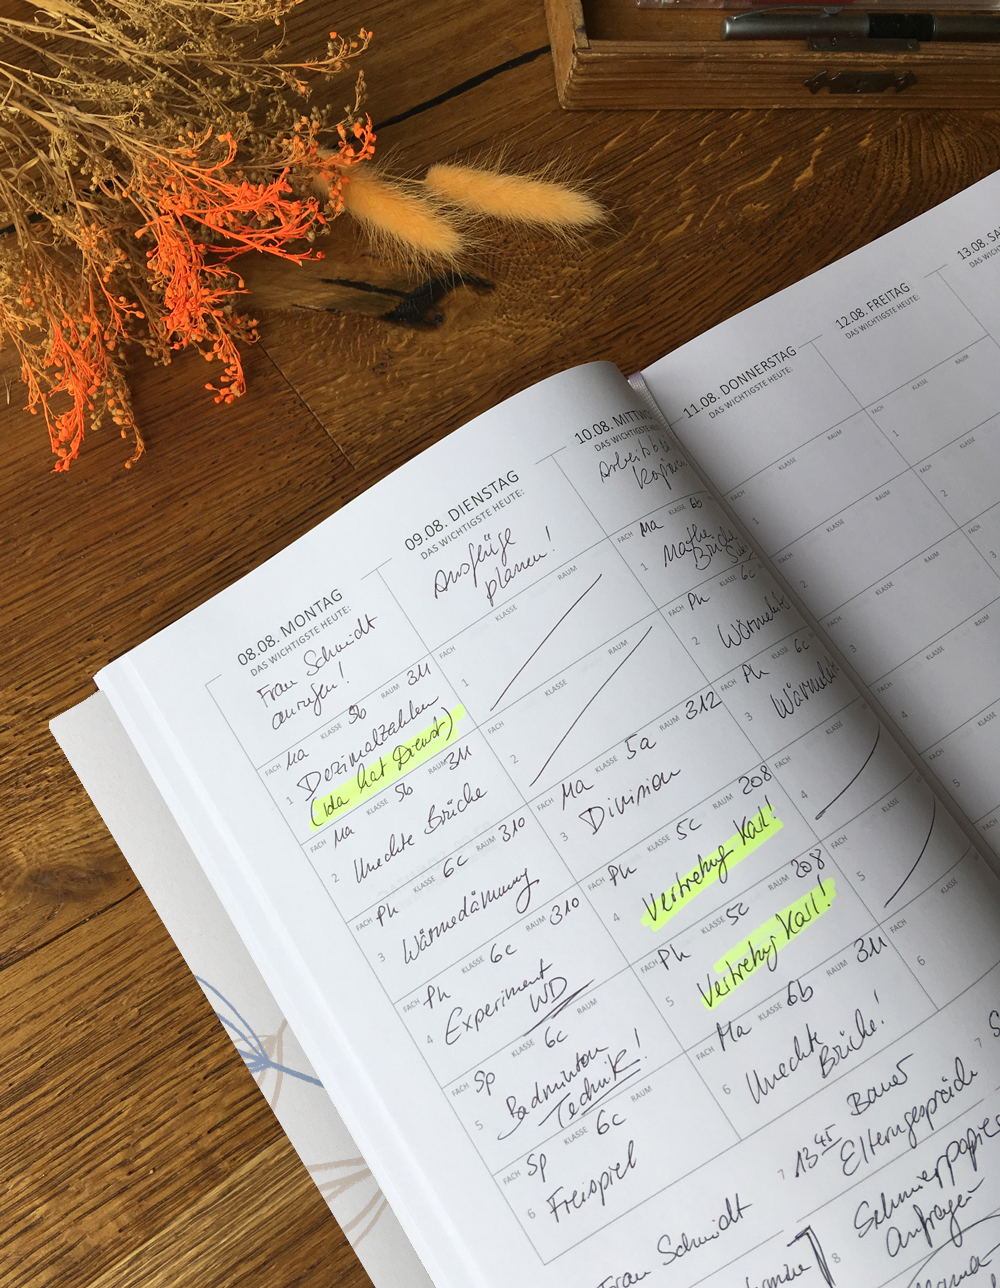 08.08. MONTAG
DAS WICHTIGSTE HEUTE:
Frau Schmidt
anrufen!
FACH Ma KLASSE 5b RAUM 311
1 Dezimalzahlen
(Ida hat Dienst)
FACH Ma KLASSE 5b RAUM 311
2 Unechte Brüche
FACH Ph KLASSE 6c RAUM 310
3 Wärmedämmung
FACH Ph KLASSE 6c RAUM 310
4 Experiment
WD
FACH Sp KLASSE 6c RAUM
5 Badminton
Technik!
FACH Sp KLASSE 6c RAUM
6 Freispiel
Frau Schmidt
09.08. DIENSTAG
DAS WICHTIGSTE HEUTE:
Ausflüge
planen!
FACH KLASSE RAUM
1
FACH KLASSE RAUM
2
FACH Ma KLASSE 5a RAUM 312
3 Division
FACH Ph KLASSE 5c RAUM 208
4 Vertretung Karl!
FACH Ph KLASSE 5c RAUM 208
5 Vertretung Karl!
FACH Ma KLASSE 6b RAUM 311
6 Unechte
Brüche!
7 13 45 Bauer
Elterngespräche
8 Schmierpapier
Anfragen
10.08.
DAS WICHTIGSTE
FACH Ma KLASSE 6b
1 Mathe
FACH Ph KLASSE 6c
2
FACH Ph KLASSE 6c
3
FACH KLASSE
4
FACH KLASSE
5
FACH KLASSE
6
7
11.08. DONNERSTAG
DAS WICHTIGSTE HEUTE:
FACH KLASSE RAUM
1
FACH KLASSE RAUM
2
FACH KLASSE RAUM
3
FACH KLASSE RAUM
4
FACH KLASSE
5
12.08. FREITAG
DAS WICHTIGSTE HEUTE:
FACH KLASSE RAUM
1
FACH KLASSE RAUM
2
FACH KLASSE
3
13.08.
DAS